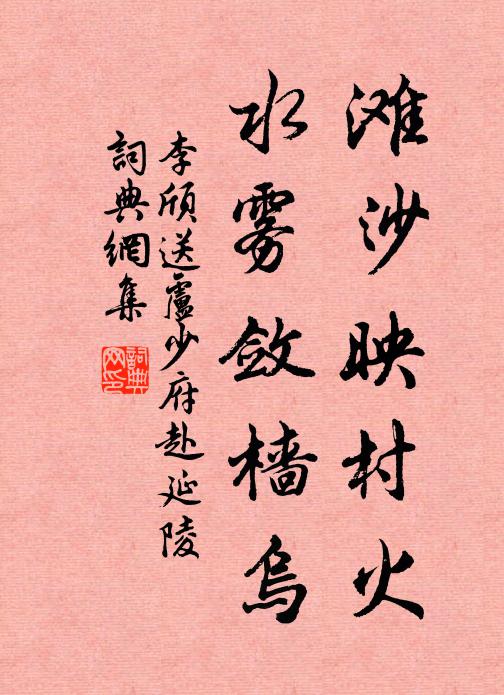 滩沙映村火
水雾敛樯乌
李颀送盧少府赴延陵
詞典網集
詞典网印